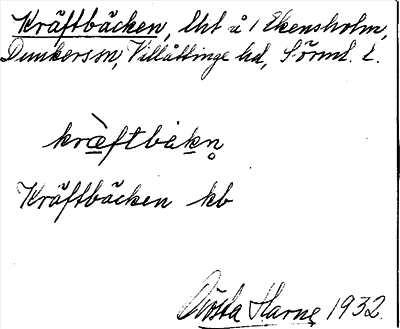 Kräftbäcken, lht å / Ekensholm,
Dunkerssn, Villåttinge hd, Sörml. l.
kràftbäkn
Kräftbäcken kb
Gösta Harne 1932.